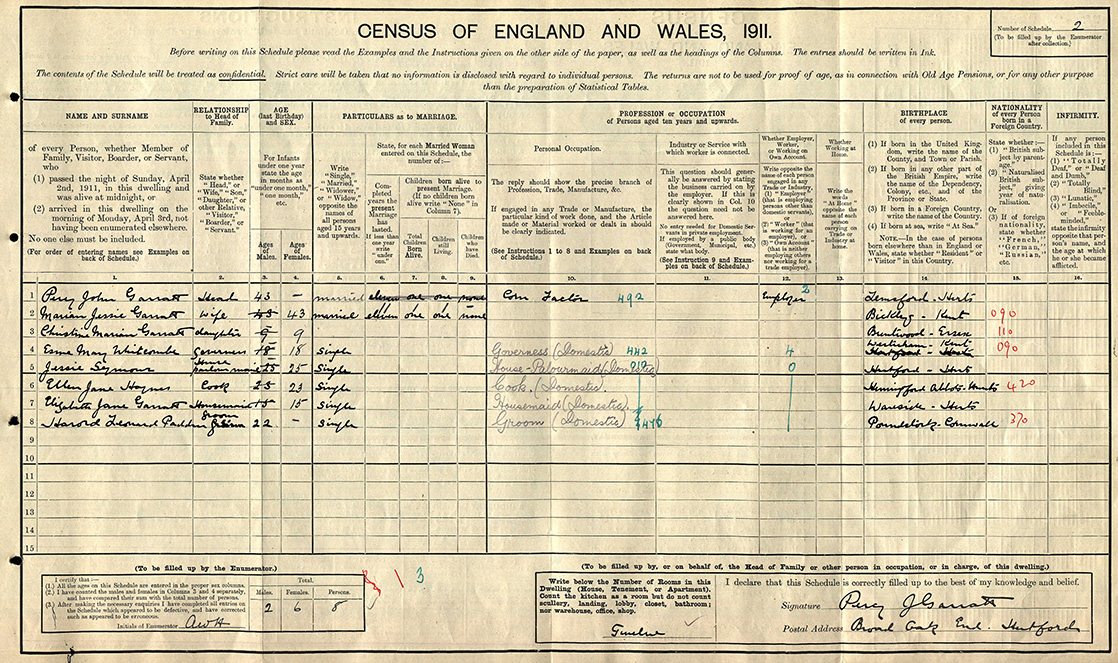 CENSUS OF ENGLAND AND WALES, 1911.
Number of Schedule. 2
(To be filled up by the Enumerator after collection.)
Before writing on this Schedule please read the Examples and the Instructions given on the other side of the paper, as well as the headings of the Columns. The entries should be written in Ink.
The contents of the Schedule will be treated as confidential. Strict care will be taken that no information is disclosed with regard to individual persons. The returns are not to be used for proof of age, as in connection with Old Age Pensions, or for any other purpose
than the preparation of Statistical Tables.
NAME AND SURNAME
RELATIONSHIP to Head of Family.
AGE (last Birthday) and SEX.
PARTICULARS as to MARRIAGE.
PROFESSION or OCCUPATION of Persons aged ten years and upwards.
BIRTHPLACE of every person.
NATIONALITY of every Person born in a Foreign Country.
INFIRMITY.
of every Person, whether Member of Family, Visitor, Boarder, or Servant, who
(1) passed the night of Sunday, April 2nd, 1911, in this dwelling and was alive at midnight, or
(2) arrived in this dwelling on the morning of Monday, April 3rd, not having been enumerated elsewhere.
No one else must be included.
(For order of entering names see Examples on back of Schedule.)
State whether "Head," or "Wife," "Son," "Daughter," or other Relative, "Visitor," "Boarder," or "Servant."
For Infants under one year state the age in months as "under one month," "one month," etc.
Ages of Males.
Ages of Females.
Write "Single," "Married," "Widower," or "Widow," opposite the names of all persons aged 15 years and upwards.
State, for each Married Woman entered on this Schedule, the number of:—
Completed years the present Marriage has lasted. If less than one year write "under one."
Children born alive to present Marriage. (If no children born alive write "None" in Column 7).
Total Children Born Alive.
Children still Living.
Children who have Died.
Personal Occupation.
The reply should show the precise branch of Profession, Trade, Manufacture, &c.
If engaged in any Trade or Manufacture, the particular kind of work done, and the Article made or Material worked or dealt in should be clearly indicated.
(See Instructions 1 to 8 and Examples on back of Schedule.)
Industry or Service with which worker is connected.
This question should generally be answered by stating the business carried on by the employer. If this is clearly shown in Col. 10 the question need not be answered here.
No entry needed for Domestic Servants in private employment.
If employed by a public body (Government, Municipal, etc.) state what body.
(See Instruction 9 and Examples on back of Schedule.)
Whether Employer, Worker, or Working on Own Account.
Write opposite the name of each person engaged in any Trade or Industry, (1) "Employer" (that is employing persons other than domestic servants), or (2) "Worker" (that is working for an employer), or (3) "Own Account" (that is neither employing others nor working for a trade employer).
Whether Working at Home.
Write the words "At Home" opposite the name of each person carrying on Trade or Industry at home.
(1) If born in the United Kingdom, write the name of the County, and Town or Parish.
(2) If born in any other part of the British Empire, write the name of the Dependency, Colony, etc., and of the Province or State.
(3) If born in a Foreign Country, write the name of the Country.
(4) If born at sea, write "At Sea."
NOTE.—In the case of persons born elsewhere than in England or Wales, state whether "Resident" or "Visitor" in this Country.
State whether:—
(1) "British subject by parentage."
(2) "Naturalised British subject," giving year of naturalisation.
Or
(3) If of foreign nationality, state whether "French," "German," "Russian," etc.
If any person included in this Schedule is:—
(1) "Totally Deaf," or "Deaf and Dumb,"
(2) "Totally Blind,"
(3) "Lunatic,"
(4) "Imbecile," or "Feeble-minded,"
state the infirmity opposite that person's name, and the age at which he or she became afflicted.
1. 2. 3. 4. 5. 6. 7. 8. 9. 10. 11. 12. 13. 14. 15. 16.
1 Percy John Garratt Head 43 – married eleven one one none Corn Factor 492 Employer 2 Lemsford - Herts
2 Marian Jessie Garratt Wife 43 43 married eleven one one none Bickley - Kent 090
3 Christine Marian Garratt daughter 9 9 Brentwood - Essex 110
4 Esma Mary Whitcombe governess 18 18 Single Governess (Domestic) 442 4 Westerham - Kent Hertford - Herts 090
5 Jessie Seymour House parlourmaid 25 25 Single House-Parlourmaid (Domestic) 0 Hertford - Herts
6 Ellen Jane Haynes Cook 23 23 Single Cook. (Domestic). Hemingford Abbots - Hunts 420
7 Elizabeth Jane Garratt Housemaid 15 15 Single Housemaid (Domestic). Wareside - Herts
8 Harold Leonard Groom 22 – Single Groom (Domestic) Poundstock - Cornwall 370
9
10
11
12
13
14
15
(To be filled up by the Enumerator.)
I certify that:—
(1.) All the ages on this Schedule are entered in the proper sex columns.
(2.) I have counted the males and females in Columns 3 and 4 separately, and have compared their sum with the total number of persons.
(3.) After making the necessary enquiries I have completed all entries on the Schedule which appeared to be defective, and have corrected such as appeared to be erroneous.
Initials of Enumerator AWH
Total.
Males. Females. Persons.
2 6 8
1 3
(To be filled up by, or on behalf of, the Head of Family or other person in occupation, or in charge, of this dwelling.)
Write below the Number of Rooms in this Dwelling (House, Tenement, or Apartment). Count the kitchen as a room but do not count scullery, landing, lobby, closet, bathroom; nor warehouse, office, shop.
Twelve
I declare that this Schedule is correctly filled up to the best of my knowledge and belief.
Signature Percy J Garratt
Postal Address Broad Oak End. Hertford